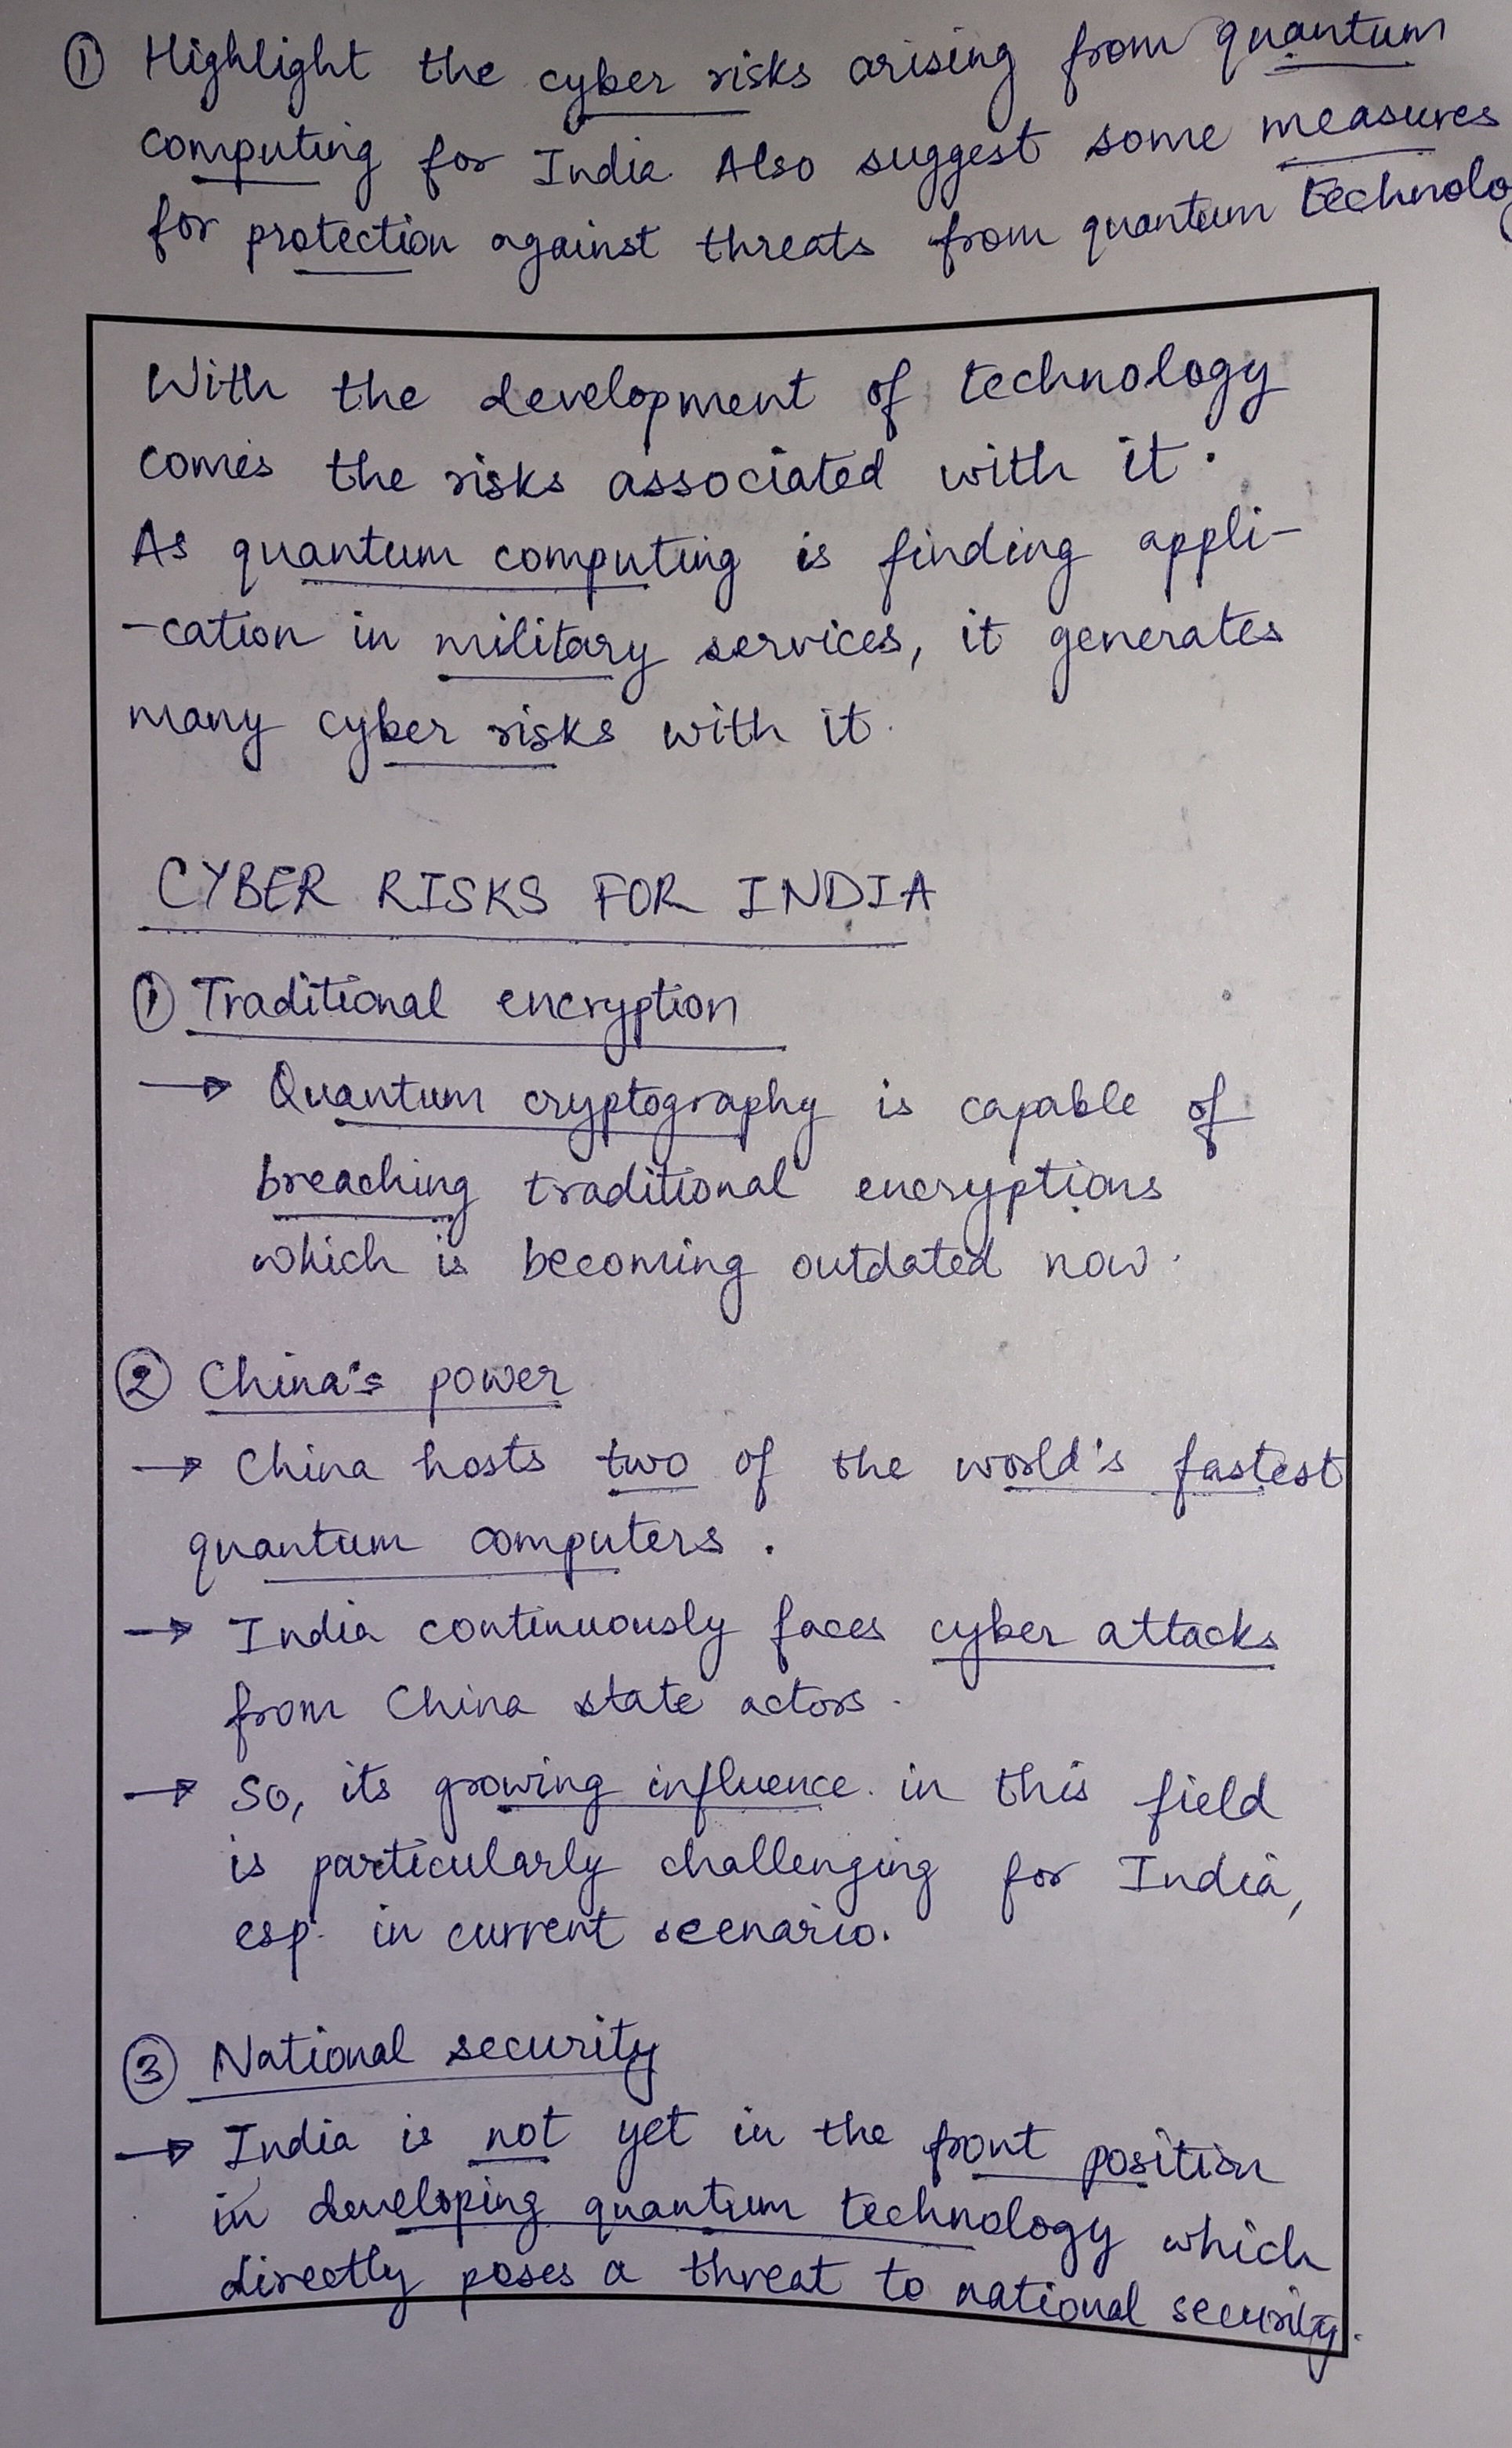 ① Highlight the cyber risks arising from quantum
computing for India. Also suggest some measures
for protection against threats from quantum technolog
With the development of technology
comes the risks associated with it.
As quantum computing is finding appli-
-cation in military services, it generates
many cyber risks with it.
CYBER RISKS FOR INDIA
① Traditional encryption
→ Quantum cryptography is capable of
breaching traditional encryptions
which is becoming outdated now.
② China's power
→ China hosts two of the world's fastest
quantum computers.
→ India continuously faces cyber attacks
from China state actors.
→ So, its growing influence in this field
is particularly challenging for India,
esp. in current scenario.
③ National security
→ India is not yet in the front position
in developing quantum technology which
directly poses a threat to national security.